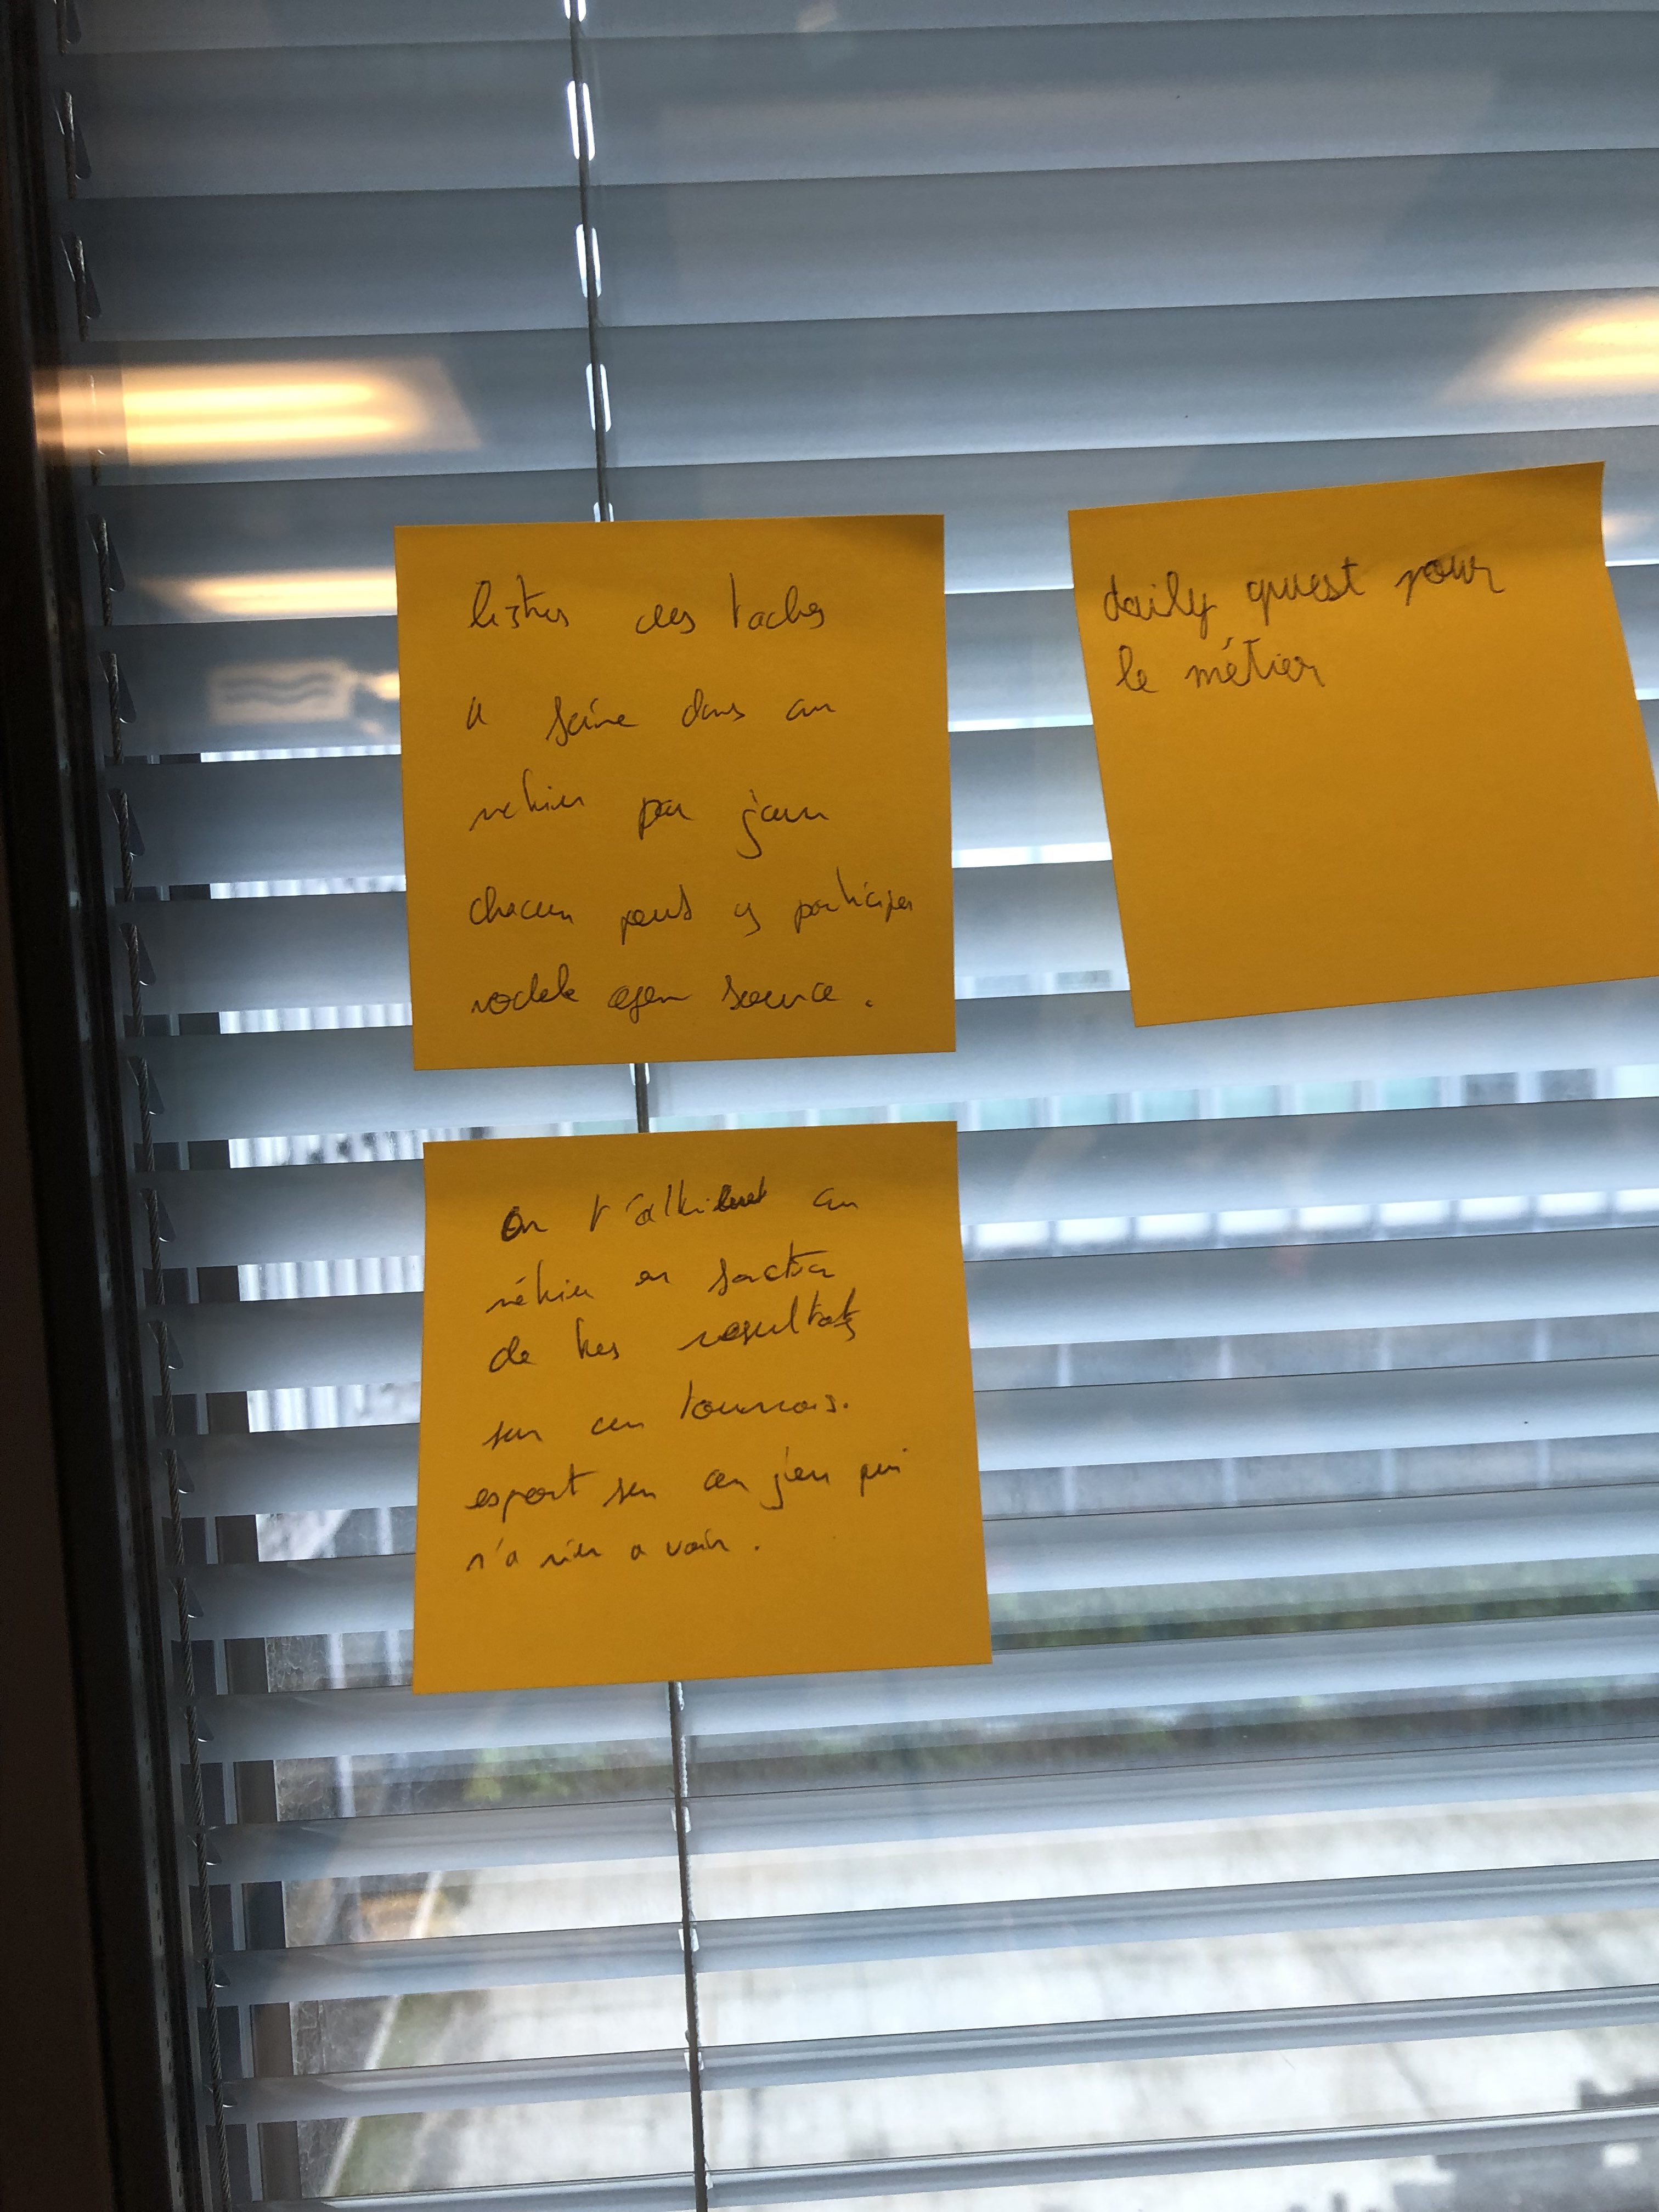 listes des taches
a faire dans un
métier par jour
chacun peut y participer
modele open source.
daily quest pour
le métier
On t'attribut un
métier en fonction
de tes resultats
sur un tournois.
esport sur un jeu qui
n'a rien a voir.